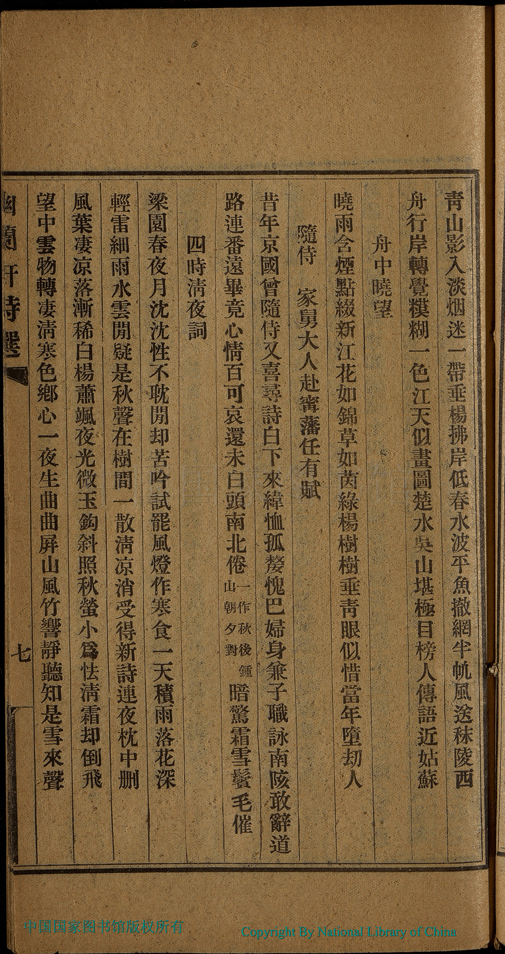 青山影入淡烟迷一帶垂楊拂岸低春水波平魚撤網半帆風送秣陵西
舟行岸轉覺糢糊一色江天似畫圖楚水吳山堪極目榜人傳語近姑蘇
舟中曉望
曉雨含煙點綴新江花如錦草如茵綠楊樹樹垂青眼似惜當年墮劫人
隨侍 家舅大人赴甯藩任有賦
昔年京國曾隨侍又喜尋詩白下來緯恤孤嫠愧巴婦身兼子職詠南陔敢辭道
路連番遠畢竟心情百可哀還未白頭南北倦一作秋後鍾山朝夕對暗驚霜雪鬢毛催
四時清夜詞
梁園春夜月沈沈性不耽閒却苦吟試罷風燈作寒食一天積雨落花深
輕雷細雨水雲閒疑是秋聲在樹間一散清涼消受得新詩連夜枕中刪
風葉凄凉落漸稀白楊蕭颯夜光微玉鈎斜照秋螢小爲怯清霜却倒飛
望中雲物轉凄清寒色鄉心一夜生曲曲屏山風竹響靜聽知是雪來聲
幽蘭軒詩選
七
中国国家图书馆版权所有
Copyright By National Library of China